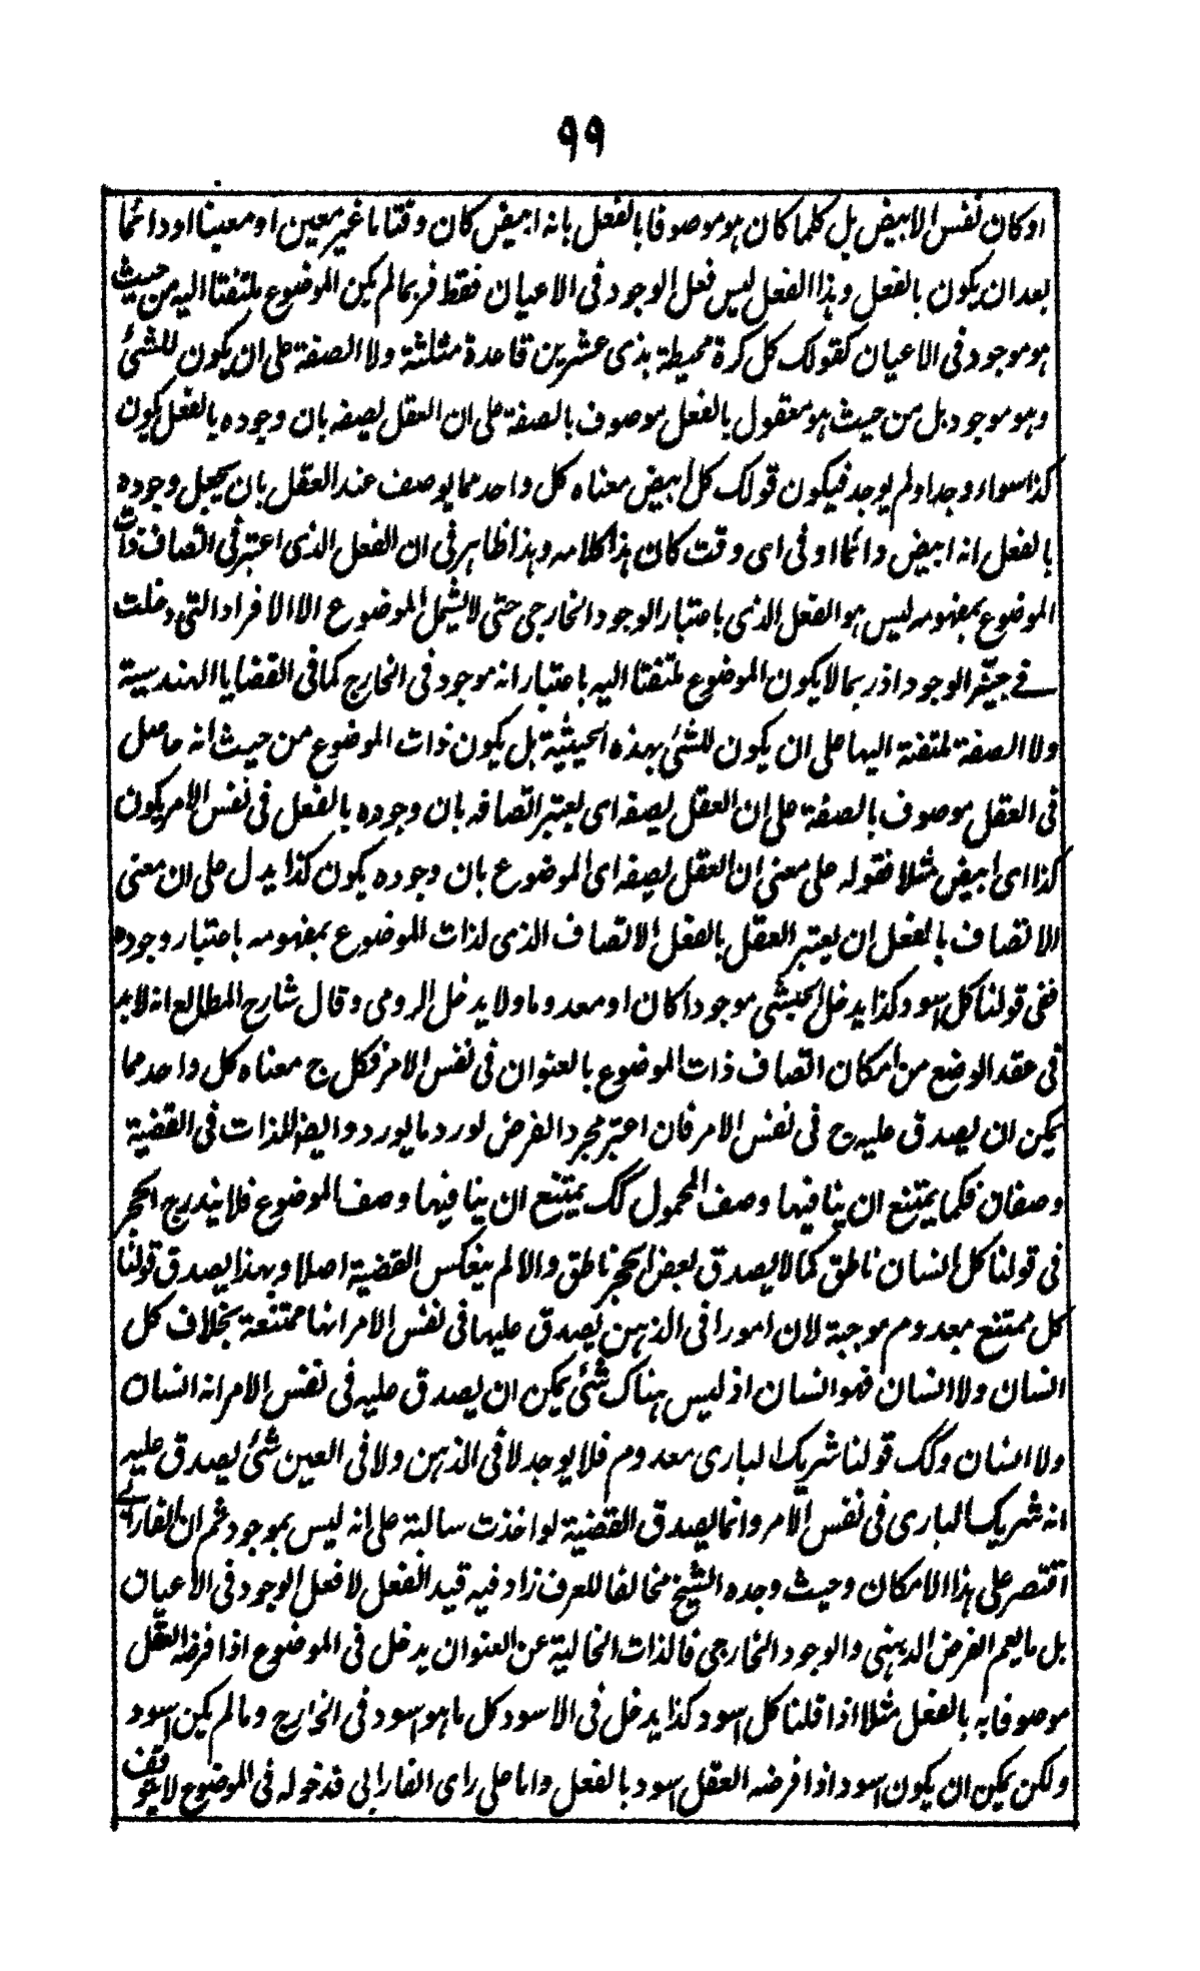 ٩٩
او كان نفس الابيض بل كلما كان هو موصوفا بالفعل بانه ابيض كان وقتا ما غير معين او معينا او دائما
بعد ان يكون بالفعل وهذا الفعل ليس فعل الوجود فى الاعيان فقط فربما لم يكن الموضوع ملتفتا اليه من حيث
هو موجود فى الاعيان كقولك كل كرة محيطة بذى عشرين قاعدة مثلثة ولا الصفة على ان يكون للشئ
وهو موجود بل من حيث هو معقول بالفعل موصوف بالصفة على ان العقل يصفه بان وجوده بالفعل يكون
كذا سواء وجد او لم يوجد فيكون قولك كل ابيض معناه كل واحد مما يوصف عند العقل بان يجعل وجوده
بالفعل انه ابيض دائما او فى اى وقت كان هذا كلامه وهذا ظاهر فى ان الفعل الذى اعتبر فى اتصاف ذات
الموضوع بمفهومه ليس هو الفعل الذى باعتبار الوجود الخارجى حتى لا يشمل الموضوع الا الافراد التى دخلت
فى حيّز الوجود اذ ربما لا يكون الموضوع ملتفتا اليه باعتبار انه موجود فى الخارج كما فى القضايا الهندسية
ولا الصفة ملتفتة اليها على ان يكون للشئ بهذه الحيثية بل يكون ذات الموضوع من حيث انه حاصل
فى العقل موصوف بالصفة على ان العقل يصفه اى يعتبر اتصافه بان وجوده بالفعل فى نفس الامر يكون
كذا اى ابيض مثلا فقوله على معنى ان العقل يصفه اى الموضوع بان وجوده يكون كذا يدل على ان معنى
الاتصاف بالفعل ان يعتبر العقل بالفعل الاتصاف الذى لذات الموضوع بمفهومه باعتبار وجوده
ففى قولنا كل اسود كذا يدخل الحبشى موجودا كان او معدوما ولا يدخل الرومى وقال شارح المطالع انه لا بد
فى عقد الوضع من امكان اتصاف ذات الموضوع بالعنوان فى نفس الامر فكل ج معناه كل واحد مما
يمكن ان يصدق عليه ج فى نفس الامر فان اعتبر مجرد الفرض لورد ما يورد وايضا للذات فى القضية
وصفان فكما يمتنع ان ينافيها وصف المحمول كك يمتنع ان ينافيها وصف الموضوع فلا يندرج الحجر
فى قولنا كل انسان ناطق كما لا يصدق بعض الحجر ناطق والا لم ينعكس القضية اصلا وبهذا يصدق قولنا
كل ممتنع معدوم موجبة لان امورا فى الذهن يصدق عليها فى نفس الامر انها ممتنعة بخلاف كل
انسان ولا انسان فهو انسان اذ ليس هناك شئ يمكن ان يصدق عليه فى نفس الامر انه انسان
ولا انسان وكك قولنا شريك البارى معدوم فلا يوجد لا فى الذهن ولا فى العين شئ يصدق عليه
انه شريك البارى فى نفس الامر وانما يصدق القضية لو اخذت سالبة على انه ليس بموجود ثم ان الفارابى
اقتصر على هذا الامكان وحيث وجده الشيخ مخالفا للعرف زاد فيه قيد الفعل لا فعل الوجود فى الاعيان
بل ما يعم الفرض الذهنى والوجود الخارجى فالذات الخالية عن العنوان يدخل فى الموضوع اذا فرضه العقل
موصوفا به بالفعل مثلا اذا قلنا كل اسود كذا يدخل فى الاسود كل ما هو اسود فى الخارج وما لم يكن اسود
ولكن يمكن ان يكون اسود اذا فرضه العقل اسود بالفعل واما على راى الفارابى فدخوله فى الموضوع لا يتوقف